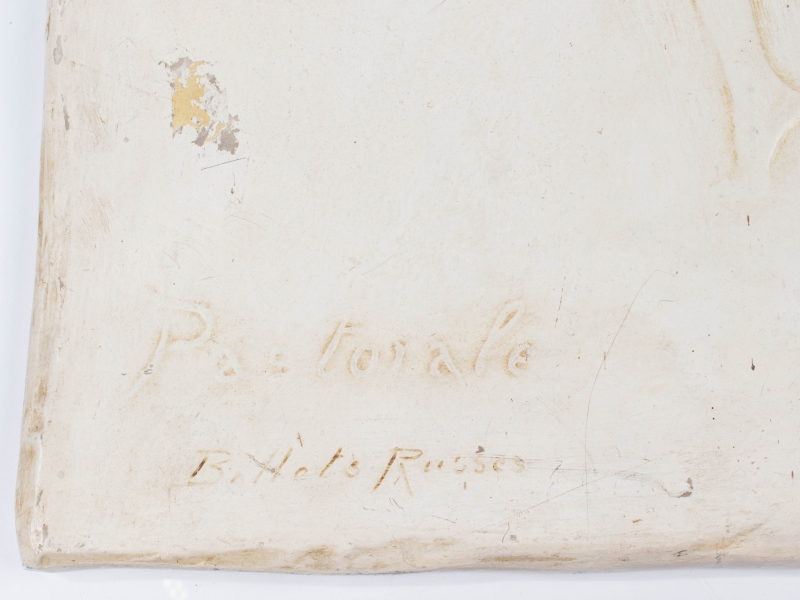 Pastorale
Ballets Russes